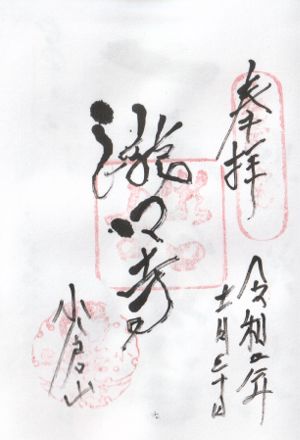 奉拝
瀧口寺
小倉山
令和四年
十一月三十日